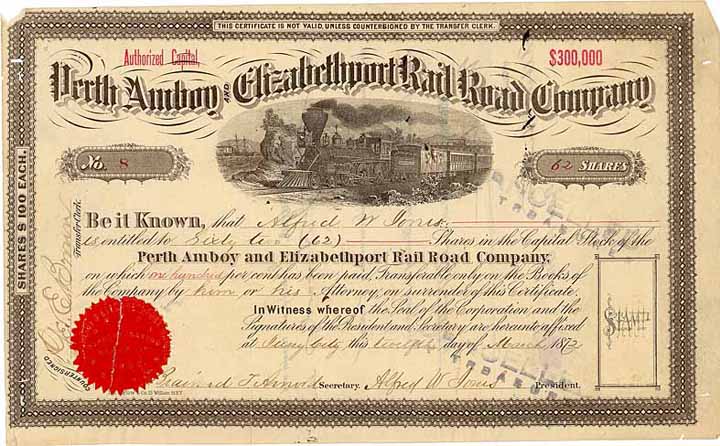 THIS CERTIFICATE IS NOT VALID, UNLESS COUNTERSIGNED BY THE TRANSFER CLERK.
Authorized Capital, $300,000
Perth Amboy AND Elizabethport Rail Road Company
No. 8
62 SHARES
SHARES $100 EACH.
Be it Known, that Alfred W Jones
is entitled to Sixty two (62) Shares in the Capital Stock of the
Perth Amboy and Elizabethport Rail Road Company,
on which one hundred per cent has been paid. Transferable only on the Books of
the Company by him or his Attorney, on surrender of this Certificate.
In Witness whereof the Seal of the Corporation and the
Signatures of the President and Secretary are hereunto affixed
at Jersey City this twelfth day of March 1872
STAMP
COUNTERSIGNED
Transfer Clerk.
Secretary. Alfred W Jones President.